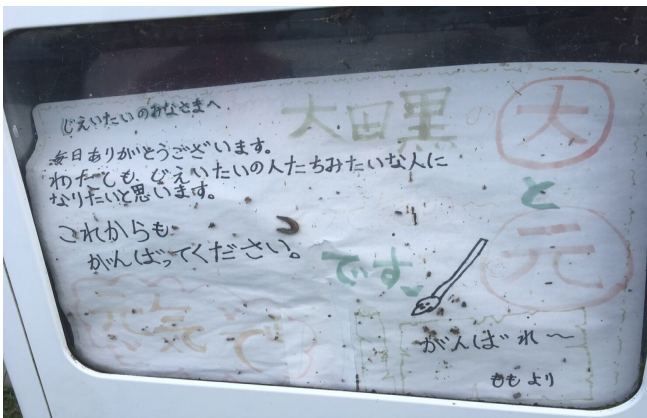 じえいたいのみなさまへ
毎日ありがとうございます。
わたしも、じえいたいの人たちみたいな人に
なりたいと思います。
これからも
がんばってください。
大田黒の
大
と
元
です、
がんばれ〜
ももより